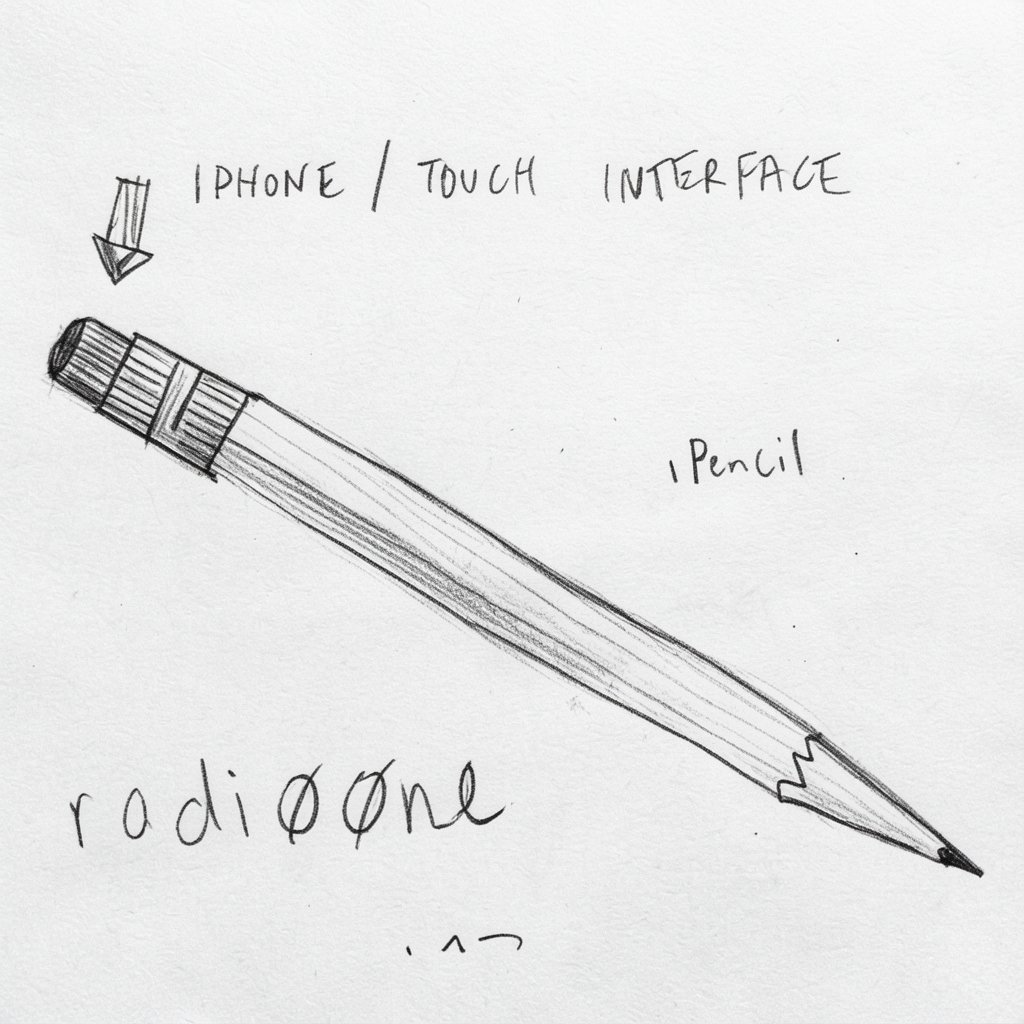 IPHONE / TOUCH INTERFACE
iPencil
radiøøne